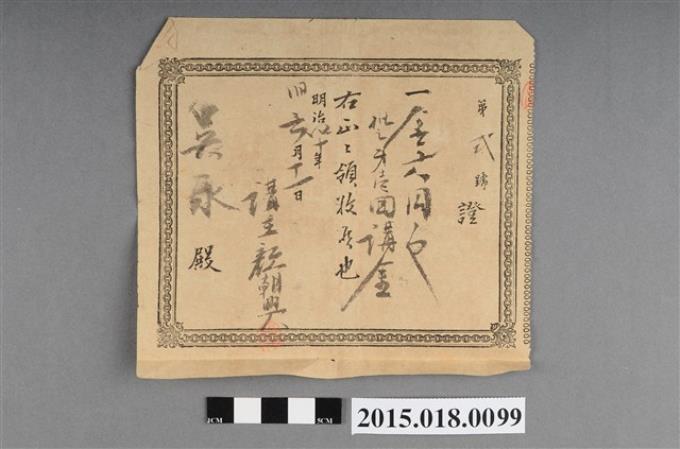 第 弍 號
證
一金五八円也
但シ第壱回講金
右正ニ領收候也
明治四十年
旧六月十一日
講主顏朝興
吳永 殿
1CM
5CM
2015.018.0099